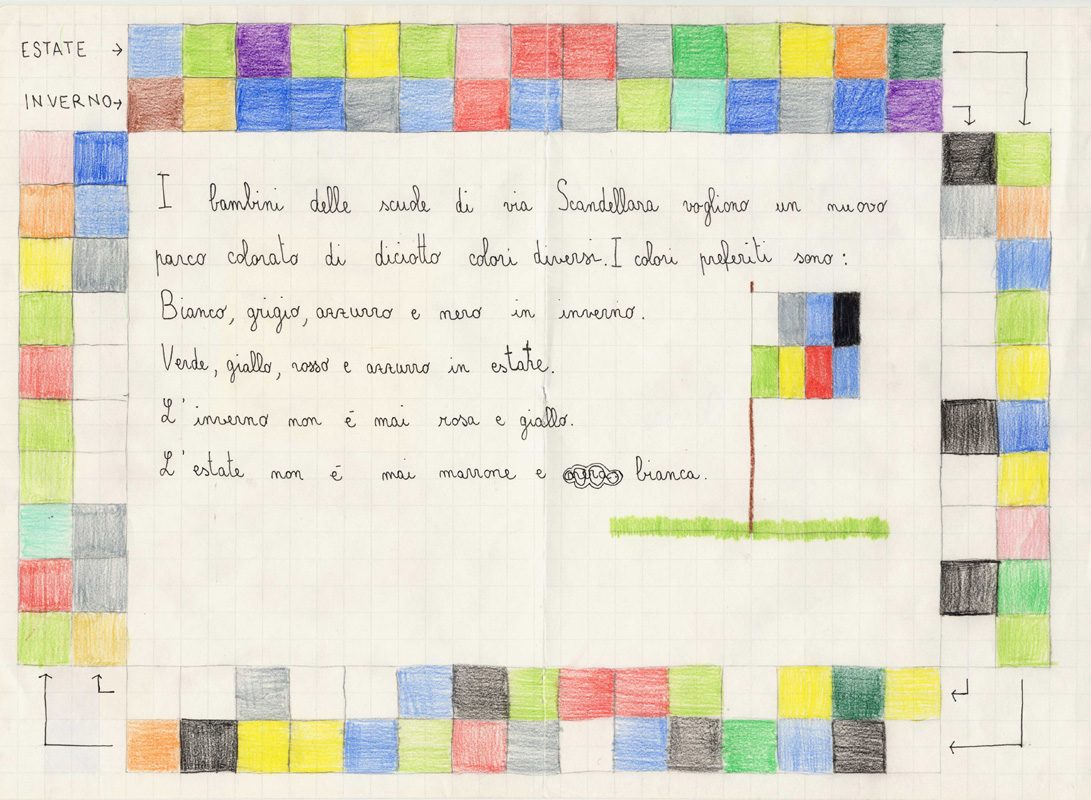 ESTATE
INVERNO
I bambini delle scuole di via Scandellara vogliono un nuovo
parco colorato di diciotto colori diversi. I colori preferiti sono:
Bianco, grigio, azzurro e nero in inverno.
Verde, giallo, rosso e azzurro in estate.
L'inverno non é mai rosa e giallo.
L'estate non é mai marrone e bianca.